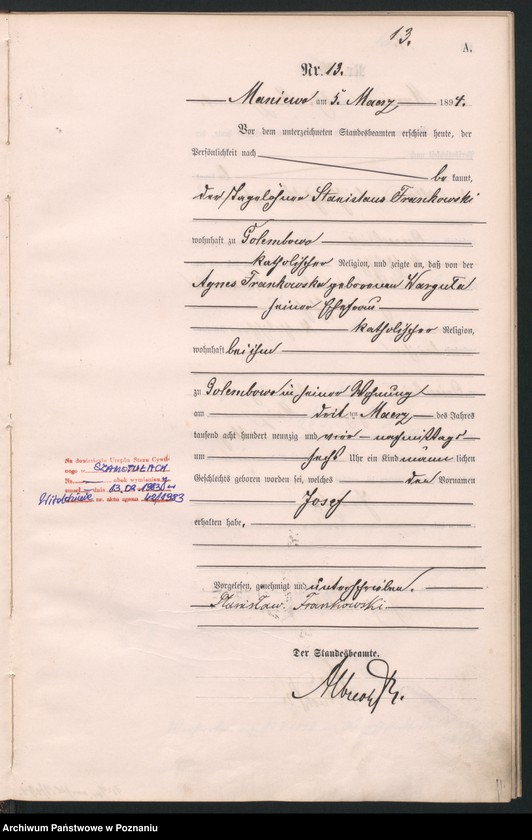 13.
A.
Nr. 13.
Maniewo am 5. Maerz 1894.
Vor dem unterzeichneten Standesbeamten erschien heute, der
Persönlichkeit nach
be kannt,
der Tagelöhner Stanislaus Frankowski
wohnhaft zu Golembowo
katholischer Religion, und zeigte an, daß von der
Agnes Frankowska geborenen Warguła
seiner Ehefrau
katholischer Religion,
wohnhaft bei ihm
zu Golembowo in seiner Wohnung
am dritten Maerz des Jahres
tausend acht hundert neunzig und vier nachmittags
um sechs Uhr ein Kind männlichen
Geschlechts geboren worden sei, welches den Vornamen
Josef
erhalten habe.
Na doniesienie Urzędu Stanu Cywilnego w SZAMOTUŁACH
Nr. obok wymieniony
zmarł w dniu 13.02.1983 w
nr. aktu zgonu 42/1983
Vorgelesen, genehmigt und unterschrieben.
Stanisław Frankowski
Der Standesbeamte.
Archiwum Państwowe w Poznaniu